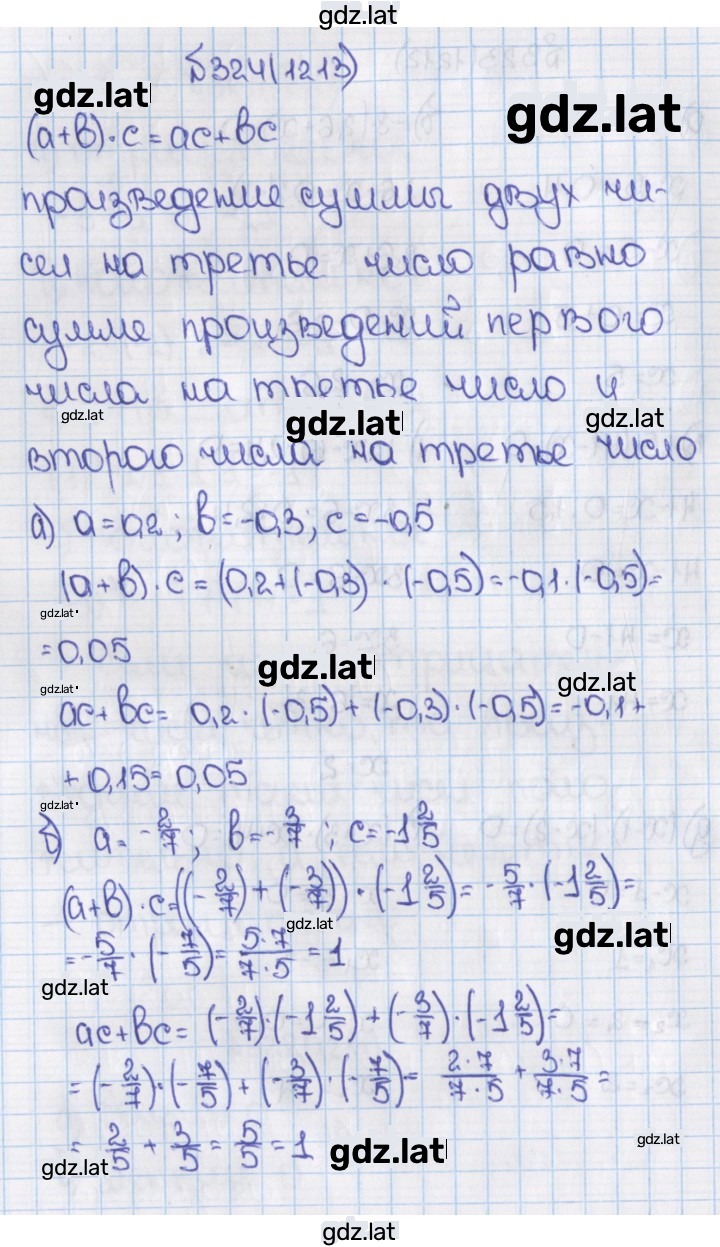 gdz.lat
№324(1213)
gdz.lat
gdz.lat
(a+b)·c=ac+bc
произведение суммы двух чи-
сел на третье число равно
сумме произведений первого
числа на третье число и
gdz.lat
gdz.lat
gdz.lat
второго числа на третье число
а) a=0,2; b=-0,3; c=-0,5
(a+b)·c=(0,2+(-0,3)·(-0,5)=-0,1·(-0,5)=
gdz.lat
=0,05
gdz.lat
gdz.lat
gdz.lat
ac+bc= 0,2·(-0,5)+(-0,3)·(-0,5)=-0,1+
+0,15=0,05
gdz.lat
б) a=-2/7; b=-3/7; c=-1 2/5
(a+b)·c=((-2/7)+(-3/7))·(-1 2/5)=-5/7·(-1 2/5)=
gdz.lat
gdz.lat
=-5/7·(-7/5)=5·7/7·5=1
gdz.lat
ac+bc=(-2/7)·(-1 2/5)+(-3/7)·(-1 2/5)=
=(-2/7)·(-7/5)+(-3/7)·(-7/5)=2·7/7·5+3·7/7·5=
=2/5+3/5=5/5=1
gdz.lat
gdz.lat
gdz.lat
gdz.lat